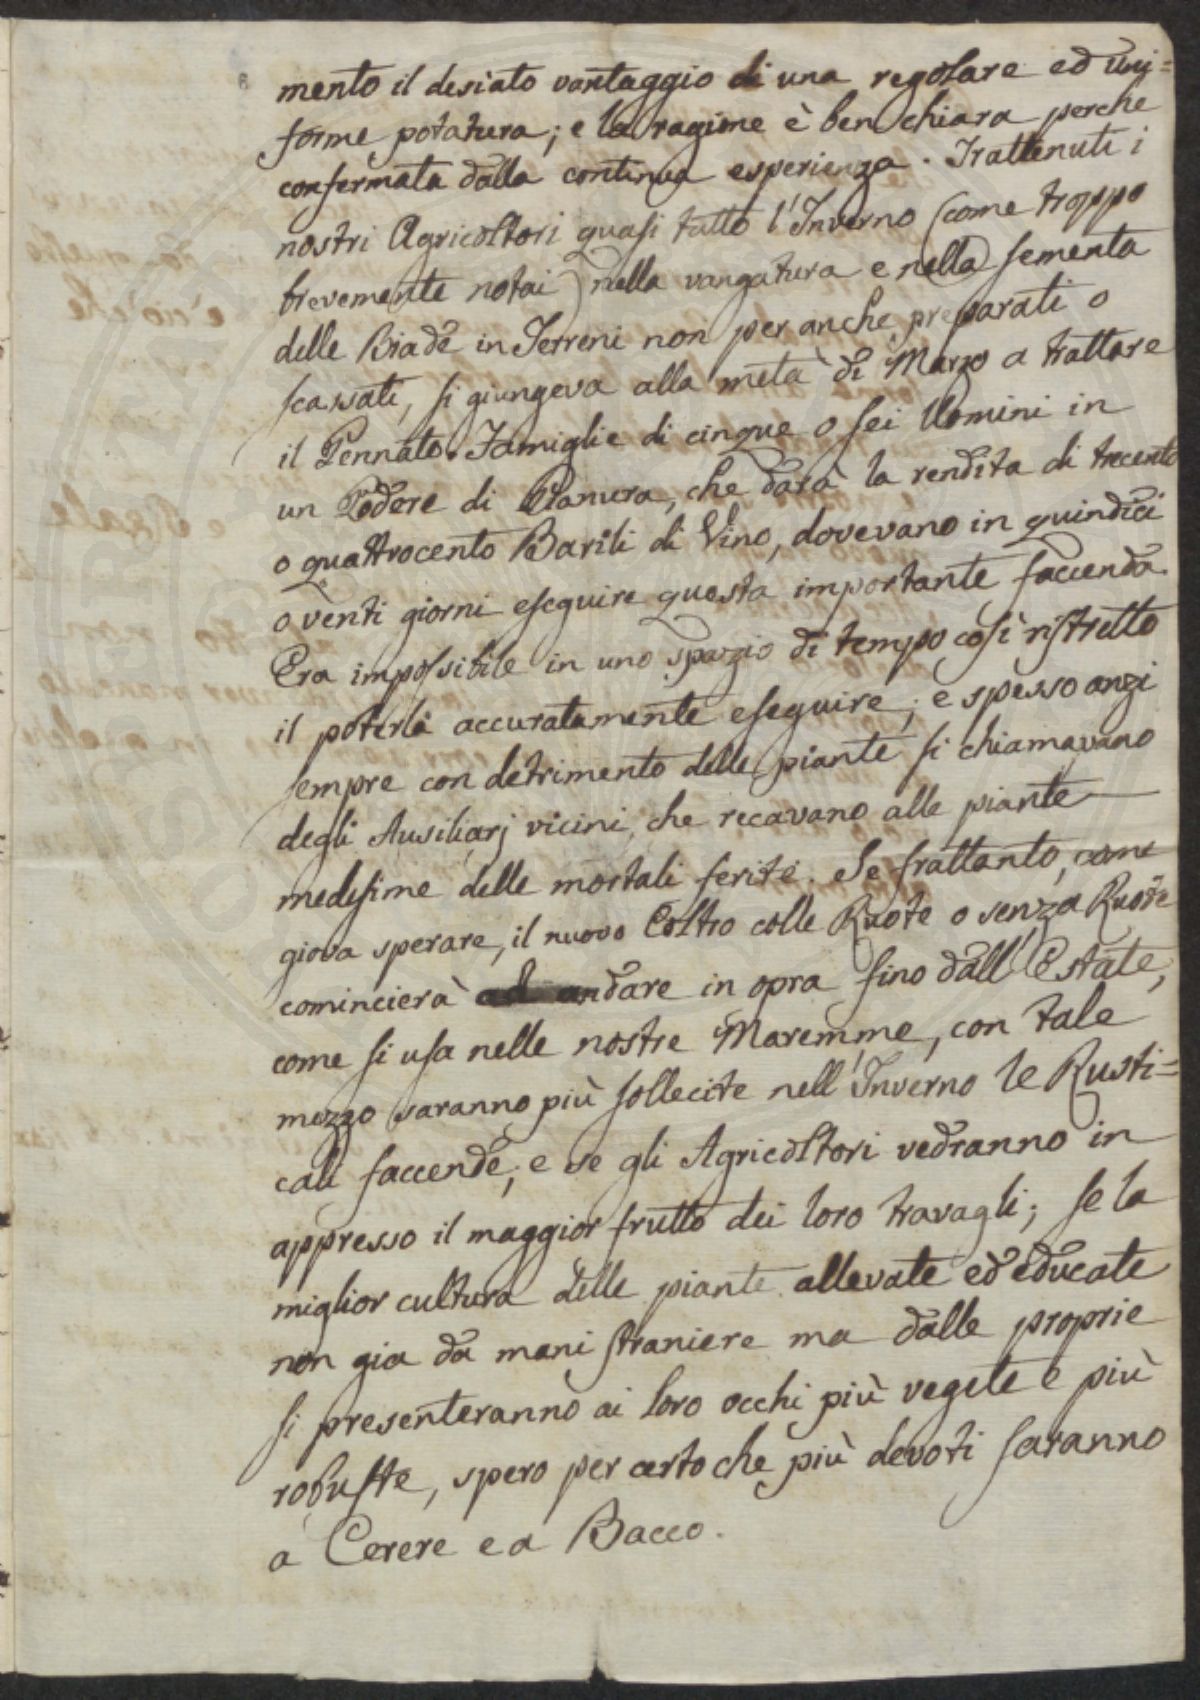 mento il desiato vantaggio di una regolare ed uni=
forme potatura; e la ragione è ben chiara perche
confermata dalla continua esperienza. Trattenuti i
nostri Agricoltori quasi tutto l'Inverno (come troppo
brevemente notai) nella vangatura e nella sementa
delle Biade in Terreni non per anche preparati o
scassati, si giungeva alla metà di Marzo a trattare
il Pennato. Famiglie di cinque o sei Uomini in
un Podere di Pianura, che darà la rendita di trecento
o quattrocento Barili di Vino, dovevano in quindici
o venti giorni eseguire questa importante faccenda.
Era impossibile in uno spazio di tempo così ristretto
il poterla accuratamente eseguire; e spesso anzi
sempre con detrimento delle piante si chiamavano
degli Ausiliarj vicini, che recavano alle piante
medesime delle mortali ferite. Se frattanto, come
giova sperare, il nuovo Coltro colle Ruote o senza Ruote
comincierà ad andare in opra fino dall'Estate,
come si usa nelle nostre Maremme, con tale
mezzo saranno più sollecite nell'Inverno le Rusti=
cali faccende; e se gli Agricoltori vedranno in
appresso il maggior frutto dei loro travagli; se la
miglior cultura delle piante allevate ed educate
non gia da mani straniere ma dalle proprie
si presenteranno ai loro occhi più vegete e più
robuste, spero per certo che più devoti saranno
a Cerere e a Bacco.